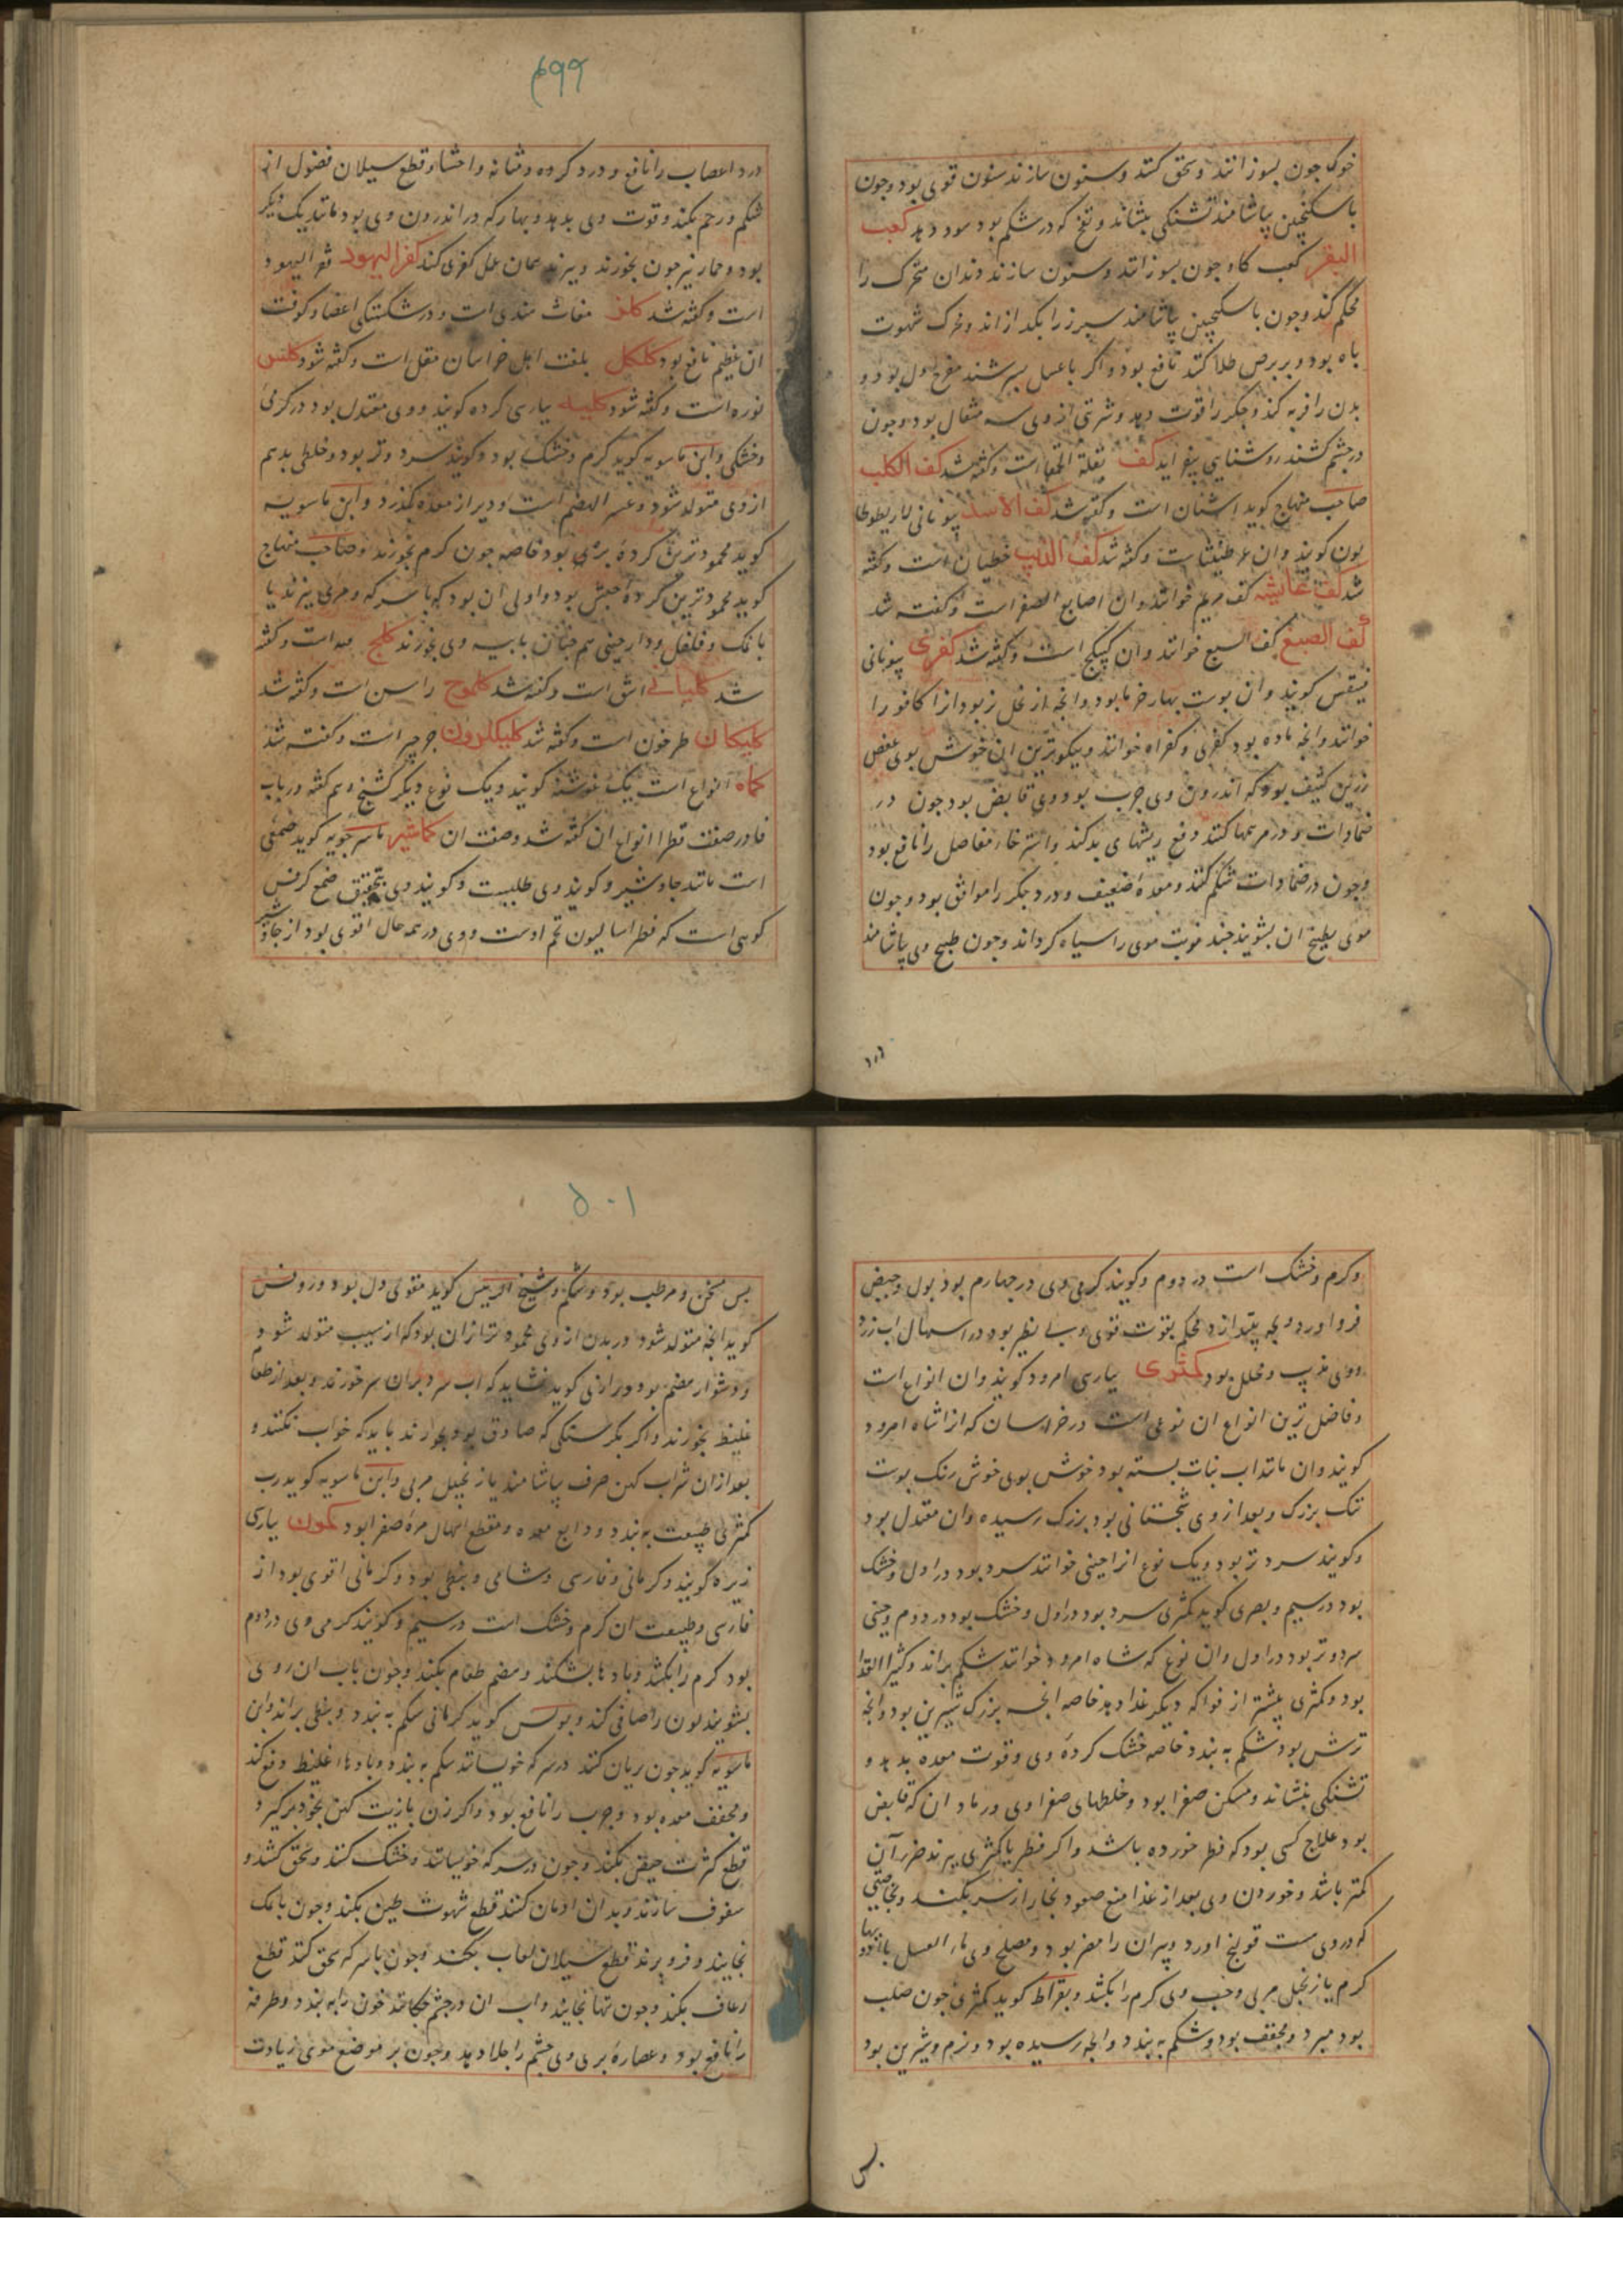 خوک چون بسوزانند و سحق کنند و سنون سازند سنون قوی بود و چون
با سکنجبین بیاشامند تشنکی بنشاند و نفخ که در شکم بود سود دهد کعب
البقر کعب کاو چون بسوزانند و سنون سازند دندان متحرک را
محکم کند و چون با سکنجبین بیاشامند سپرز را بکدازاند و محرک شهوت
باه بود و بر برص طلا کنند نافع بود و اکر با عسل بسرشند مفرح دل بود و
بدن را فربه کند و جکر را قوت دهد و شربتی از وی سه مثقال بود و چون
در چشم کشند روشنایی بیفزاید کف بقلة الحمقا است و کفته شد کف الکلب
صاحب منهاج کوید اشنان است و کفته شد کف الاسد بیونانی لاریطوطا
بون کویند و ان عرطنیثا است و کفته شد کف الذیب خطیان است و کفته
شد کف عایشه کف مریم خوانند و ان اصابع الصفر است و کفته شد
کف الضبع کف السبع خوانند و ان کبیکج است و کفته شد کفری بیونانی
فینقس کویند و ان پوست بهار خرما بود و انچه از نخل نر بود انرا کافور را
خوانند و انچه ماده بود کفری و کفراه خوانند و نیکوترین ان خوش بوی عفص
رزین کثیف بود که اندرون وی چرب بود و وی قابض بود چون در
ضمادات و در مرهمها کنند دفع ریشهای بد کند و استرخاء مفاصل را نافع بود
و چون در ضمادات شکم کنند و معده ضعیف و درد جکر را موافق بود و چون
موی بطبیخ ان بشویند چند نوبت موی را سیاه کرداند و چون طبیخ وی بیاشامند
۴۹۹
درد اعصاب را نافع و درد کرده و مثانه و احشا و قطع سیلان فضول از
شکم و رحم بکند و قوت وی بدهد و بهار که در اندرون وی بود مانند یکدیکر
بود و جمار نیز چون بخورند و بپزند همان عمل کفری کند کفر الیهود قفر الیهود
است و کفته شد کلز مغاث هندی است و در شکستکی اعضا و کوفت
ان عظیم نافع بود کلکل بلغت اهل خراسان مقل است و کفته شود کلس
نوره است و کفته شود کلیه بپارسی کرده کویند و وی معتدل بود در کرمی
و خشکی و ابن ماسویه کوید کرم و خشک بود و کویند سرد و تر بود و خلطی بد هم
از وی متولد شود و عسر الهضم است و دیر از معده بکذرد و ابن ماسویه
کوید محمودترین کرده بزی بود خاصه چون کرم بخورند و صاحب منهاج
کوید محمودترین کرده حبش بود و اولی ان بود که با سرکه و مری بپزند یا
با نمک و فلفل و دارچینی هم چنان بابیه وی بخورند کلج مه است و کفته
شد کلیانی اشق است و کفته شد کلموح راسن است و کفته شد
کلیکان طرخون است و کفته شد کلیکلرون جرجیر است و کفته شد
کماه انواع است یک نوع غوشنه کویند و یک نوع دیکر کشنج و هم کفته در باب
فا در صفت فطرا انواع ان کفته شد و صفت ان کماشیر ماسرجویه کوید صمغی
است مانند جاوشیر و کویند وی طلبیست و کویند وی بتحقیق صمغ کرفس
کوهی است که فطراسالیون تخم اوست و وی در همه حال اقوی بود از جاوشیر
و کرم و خشک است در دوم و کویند کرمی وی در چهارم بود بول و حیض
فرو اورد و بچه بیندازد و محکم بقوت قوی و بی نظیر بود در اسهال اب زرد
و وی مذیب و محلل بود کمثری بپارسی امرود کویند و ان انواع است
و فاضل ترین انواع ان نوعی است در خراسان که انرا شاه امرود
کویند و ان مانند اب نبات بسته بود خوش بوی خوش رنک پوست
تنک بزرک و بعد از وی سجستانی بود بزرک رسیده و ان معتدل بود
و کویند سرد تر بود و یک نوع انرا چینی خوانند سرد بود در اول و خشک
بود در سیم و بصری کوید کمثری سرد بود در اول و خشک بود در دوم و چینی
سرد و تر بود در اول و ان نوع که شاه امرود خوانند شکم براند و کثیر الغذا
بود و کمثری بیشتر از فواکه دیکر غذا دهد خاصه انچه بزرک شیرین بود و انچه
ترش بود شکم به بندد خاصه خشک کرده وی و قوت معده بدهد و
تشنکی بنشاند و مسکن صفرا بود و خلطهای صفراوی و رماد ان که قابض
بود علاج کسی بود که فطر خورده باشد و اکر فطر با کمثری بپزند ضرر آن
کمتر باشد و خوردن وی بعد از غذا منع صعود بخار از سر بکند و بخاصیتی
که در وی ست قولنج اورد و پیران را مضر بود و مصلح وی ماء العسل با افاویه
کرم یا زنجبیل مربی و حب وی کرم را بکشد و بقراط کوید کمثری چون صلب
بود مبرد و مجفف بود و شکم به بندد و انچه رسیده بود و نرم و شیرین بود
بس
۵۰۱
بس مسخن و مرطب بود و شکم و شیخ الرییس کوید مقوی دل بود و روفس
کوید انچه متولد شود در بدن از وی محمودتر ازان بود که از سیب متولد شود
و دشوار هضم بود و رازی کوید نشاید که اب سرد بران سر خورند و بعد از طعام
غلیظ بخورند و اکر بکرسنکی که صادق بود بخورند باید که خواب نکنند و
بعد ازان شراب کهن صرف بیاشامند یا زنجبیل مربی و ابن ماسویه کوید رب
کمثری طبیعت به بندد و دابغ معده و مقطع اسهال مره صفرا بود کمون بپارسی
زیره کویند و کرمانی و فارسی و شامی و نبطی بود و کرمانی اقوی بود از
فارسی و طبیعت ان کرم و خشک است در سیم و کویند کرمی وی در دوم
بود کرم را بکشد و بادها بشکند و هضم طعام بکند و چون باب ان روی
بشویند لون را صافی کند و بولس کوید کرمانی شکم به بندد و نبطی براند و ابن
ماسویه کوید چون بریان کنند در سرکه خویسانند شکم به بندد و بادهاء غلیظ دفع کند
و مجفف معده بود و جرب را نافع بود و اکر زن با زیت کهن بخود برکیرد
قطع کثرت حیض بکند و چون در سرکه خویسانند و خشک کنند و سحق کنند و
سفوف سازند و بدان ادمان کنند قطع شهوت طین بکند و چون با نمک
بخایند و فرو برند قطع سیلان لعاب بکند و چون با سرکه سحق کنند قطع
رعاف بکند و چون تنها بخایند و اب ان در چشم چکانند خون را به بندد و طرفه
را نافع بود و عصاره بری وی چشم را جلا دهد و چون بر موضع موی زیادت